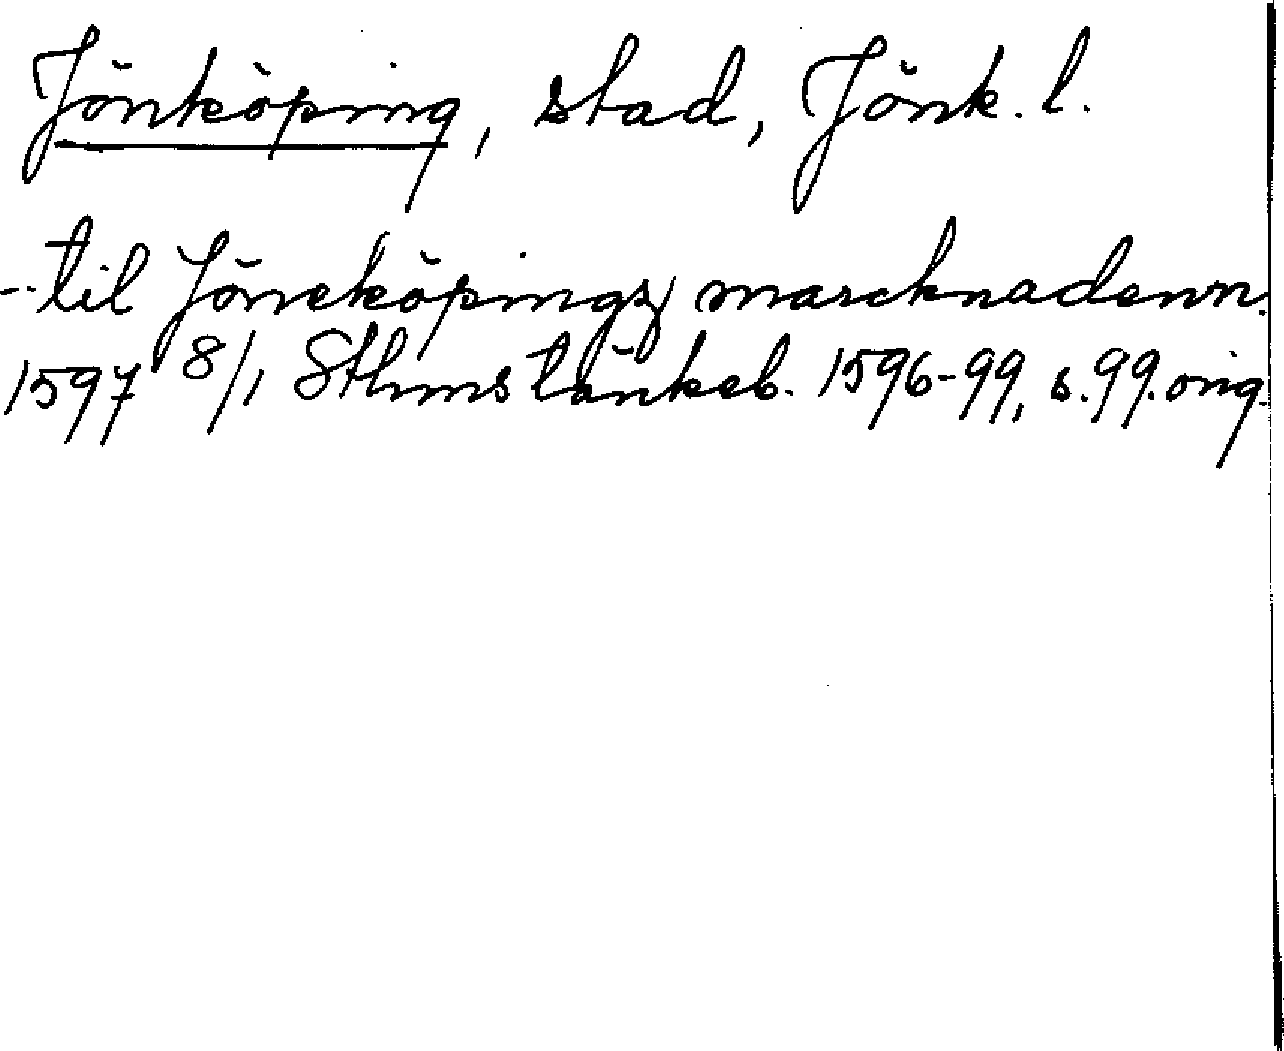 Jönköping, stad, Jönk. l.
--til Jöneköpingz marcknadenn.
1597 8/1 Sthms tänkeb. 1596-99, s. 99. orig.